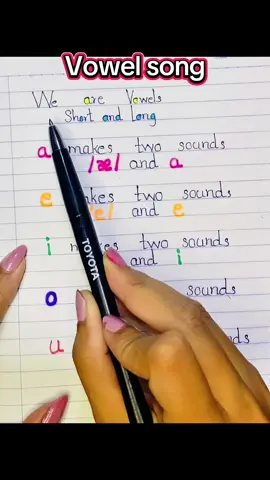 Vowel song
We are Vowels
Short and Long
a makes two sounds
/æ/ and a
e makes two sounds
/e/ and e
i makes two sounds
and i
o sounds
TOYOTA
u